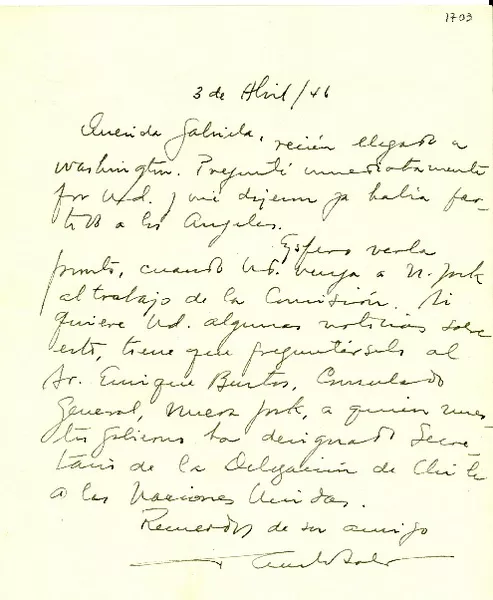 1703
3 de Abril/46
Querida Gabriela, recién llegado a
Washington. Pregunté inmediatamente
por Ud. y me dijeron ya había par-
tido a los Angeles.
Espero verla
pronto, cuando Ud. venga a N. York
al trabajo de la Comisión. Si
quiere Ud. algunas noticias sobre
esto, tiene que preguntárselo al
Sr. Enrique Bustos, Consulado
General, Nueva York, a quien nues-
tro gobierno ha designado Secre
tario de la Delegación de Chile
a las Naciones Unidas.
Recuerdos de su amigo